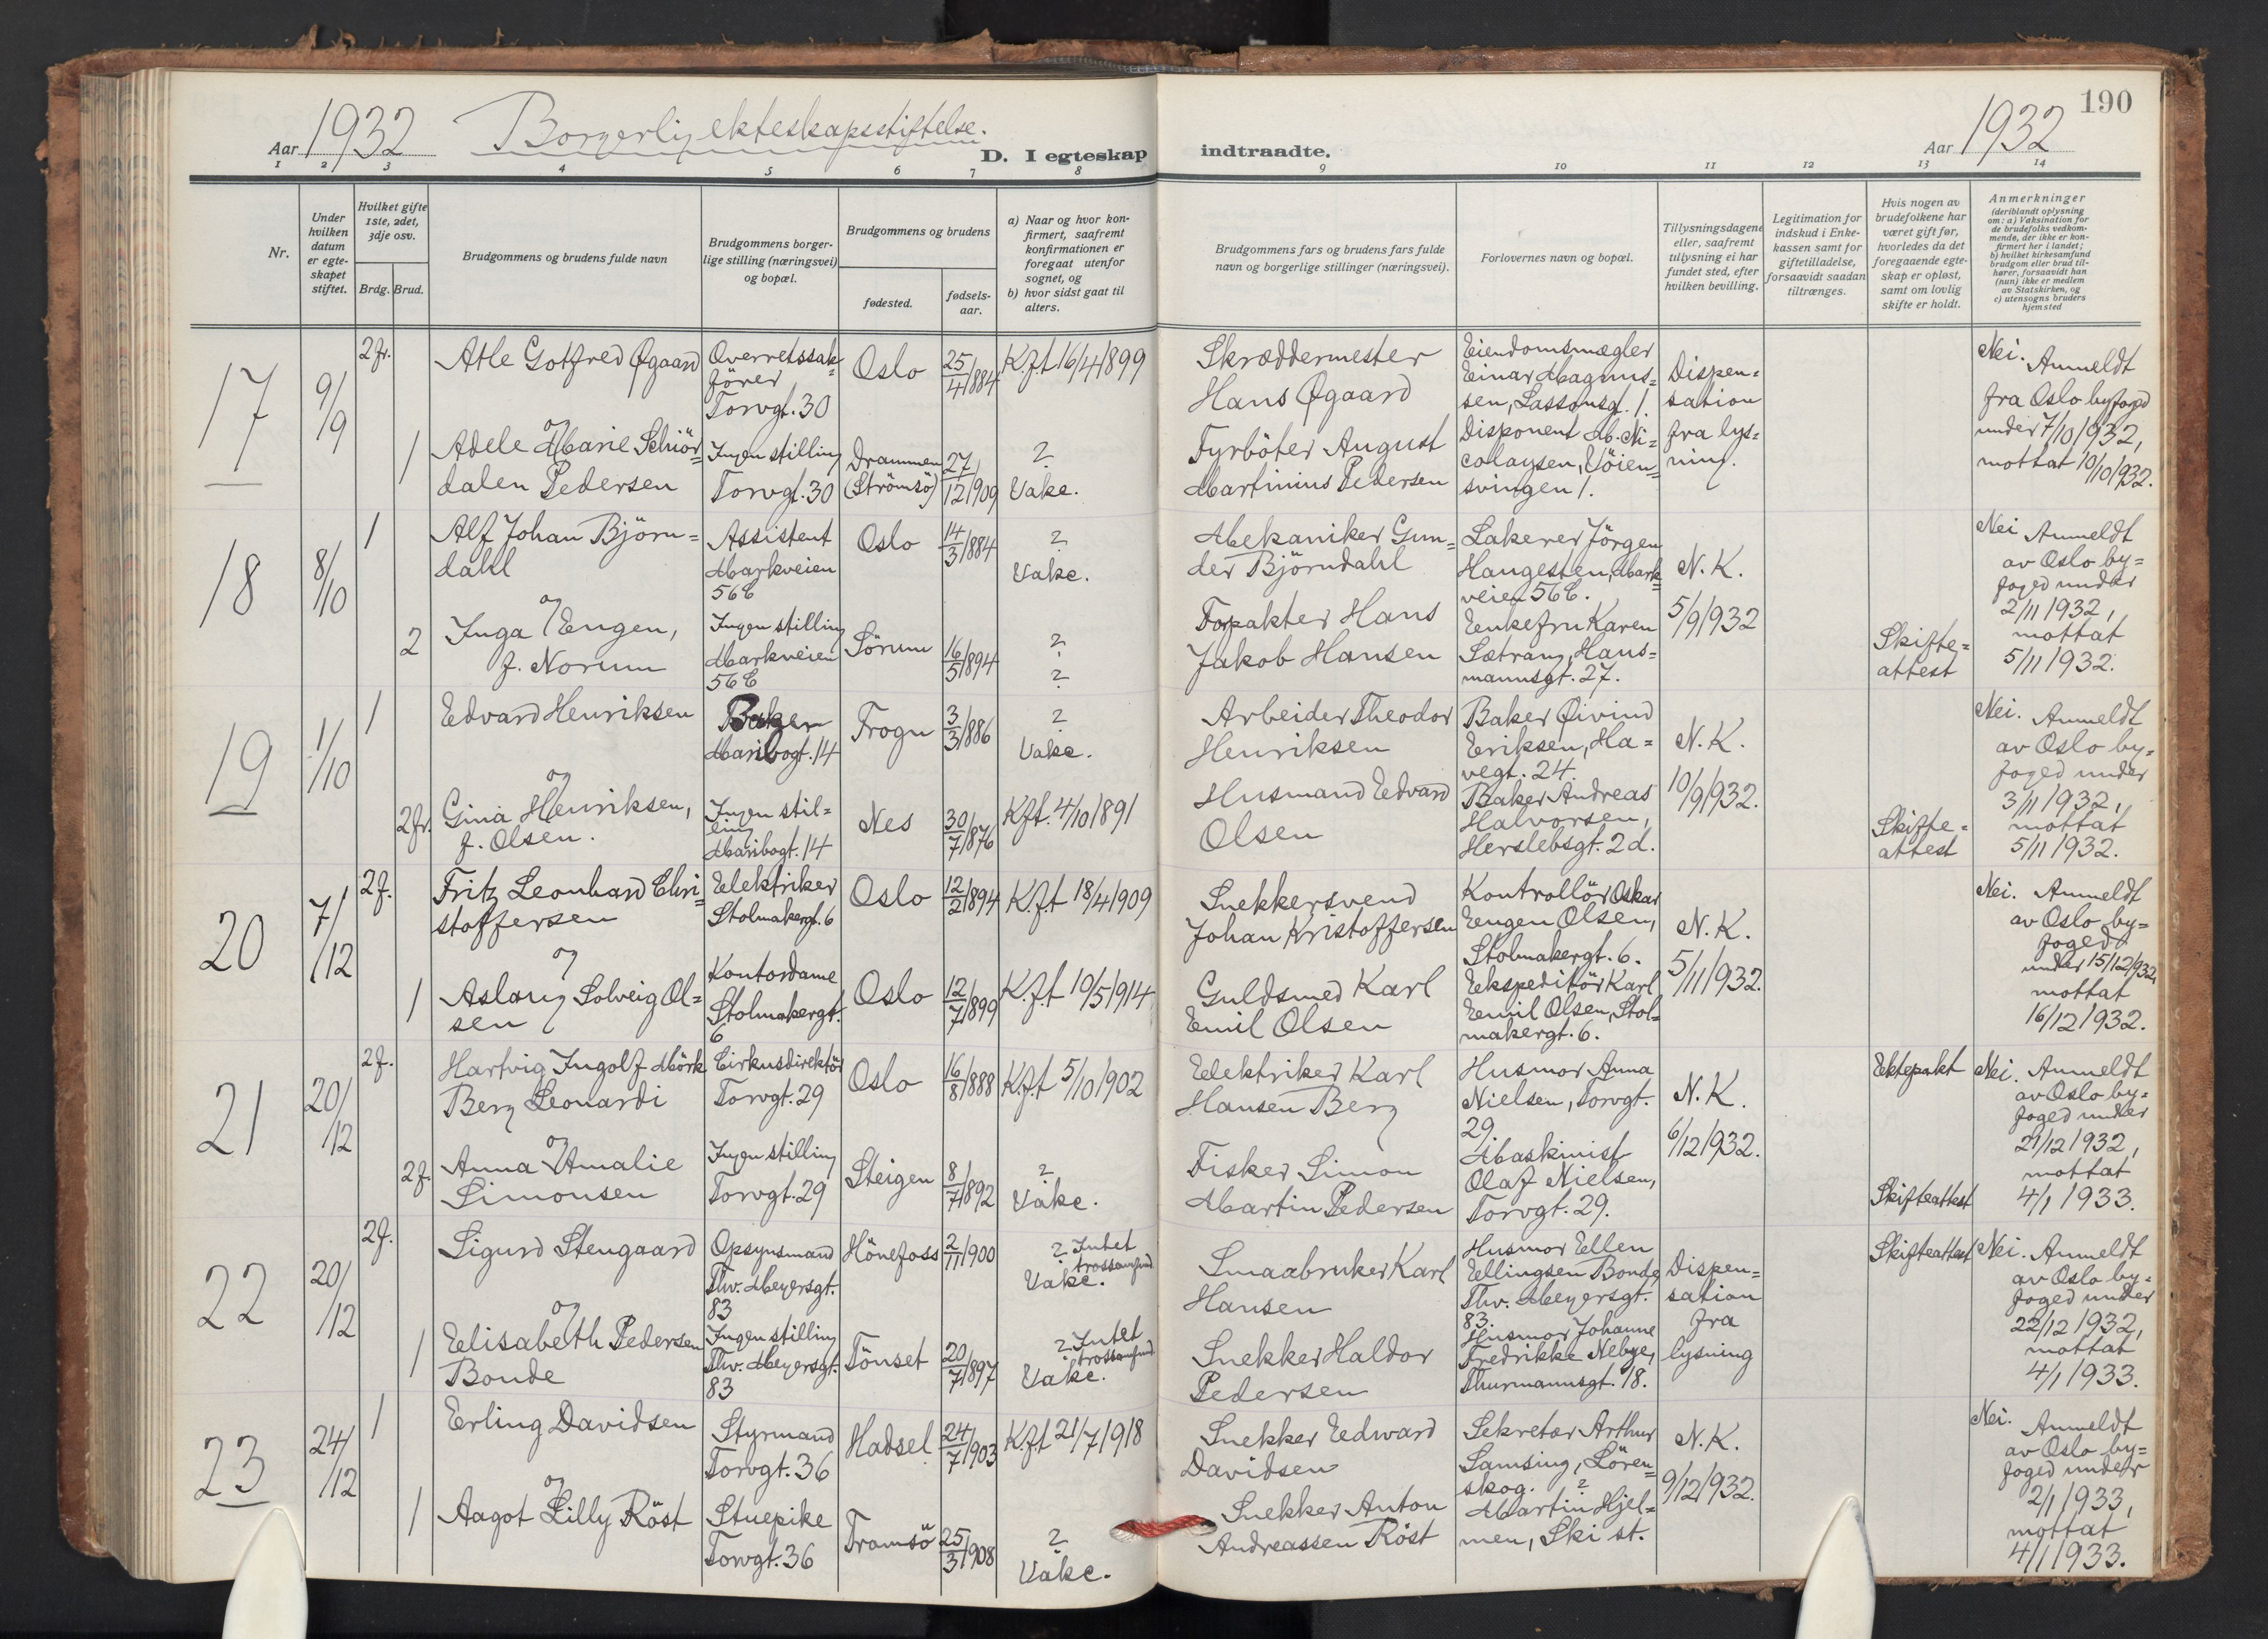 190
Aar 1932 Borgerlig ekteskapsstiftelse.
D. I egteskap indtraadte.
Aar 1932
1 2 3 4 5 6 7 8 9 10 11 12 13 14
Nr.
Under
hvilken
datum
er egte-
skapet
stiftet.
Hvilket gifte
1ste, 2det,
3dje osv.
Brdg. Brud.
Brudgommens og brudens fulde navn
Brudgommens borger-
lige stilling (næringsvei)
og bopæl.
Brudgommens og brudens
fødested.
fødsels-
aar.
a) Naar og hvor kon-
firmert, saafremt
konfirmationen er
foregaat utenfor
sognet, og
b) hvor sidst gaat til
alters.
Brudgommens fars og brudens fars fulde
navn og borgerlige stillinger (næringsvei).
Forlovernes navn og bopæl.
Tillysningsdagene
eller, saafremt
tullysning ei har
fundet sted, efter
hvilken bevilling.
Legitimation for
indskud i Enke-
kassen samt for
giftetilladelse,
forsaavidt saadan
tiltrænges.
Hvis nogen av
brudefolkene har
været gift før,
hvorledes da det
foregaaende egte-
skap er opløst,
samt om lovlig
skifte er holdt.
Anmerkninger
(deriblandt oplysning
om: a) Vaksination for
de brudefolks vedkom-
mende, der ikke er kon-
firmert her i landet;
b) hvilket kirkesamfund
brudgom eller brud til-
hører, forsaavidt han
(hun) ikke er medlem
av Statskirken, og
c) utensogns bruders
hjemsted
17
9/9
2 fr.
Atle Gotfred Øgaard
Overretssak=
förer
Torvgt. 30
Oslo
25/4 1884
K.f.t 16/4 1899
Skræddermester
Hans Øgaard
Eiendomsmægler
Einar Magnus=
sen, Lassonsg. 1.
Dispen=
sation
fra lys=
ning.
Nei. Anmeldt
fra Oslo byfogd
under 7/10 1932,
mottat 10/10 1932.
og
1
Adele Marie Schiör=
dalen Pedersen
Ingen stilling
Torvgt. 30
Drammen
(Strömsö)
27/12 1909
?
Vake.
Fyrböter August
Martinius Pedersen
Disponent M. Ni=
colaysen, Vöien=
svingen 1.
18
8/10
1
Alf Johan Björn=
dahl
Assistent
Markveien
56 C
Oslo
14/3 1884
?
Vake.
Mekaniker Gun=
der Björndahl
Lakerer Jörgen
Haugesten, Mark=
veien 56 C.
N. K.
5/9 1932
Nei Anmeldt
av Oslo by=
foged under
2/11 1932,
mottat
5/11 1932.
og
2
Inga Engen,
f. Norum
Ingen stilling
Markveien
56 C
Sörum
16/5 1894
?
?
Forpakter Hans
Jakob Hansen
Enkefru Karen
Sætrang, Haus=
mannsgt. 27.
Skifte=
attest
19
1/10
1
Edvard Henriksen
Baker
Maribogt. 14
Frogn
3/3 1886
?
Vake.
Arbeider Theodor
Henriksen
Baker Øivind
Eriksen, Ha=
vegt. 24.
N. K.
10/9 1932.
Nei. Anmeldt
av Oslo by=
foged under
3/11 1932,
mottat
5/11 1932.
og
2 fr.
Gina Henriksen,
f. Olsen.
Ingen stil=
ling
Maribogt. 14
Nes
30/7 1876
K.f.t. 4/10 1891
Husmand Edvard
Olsen
Baker Andreas
Halvorsen,
Herslebsgt. 2 d.
Skifte=
attest
20
7/12
2 f.
Fritz Leonhard Chri=
stoffersen
Elektriker
Stolmakergt. 6
Oslo
12/2 1894
K.f.t 18/4 1909
Snekkersvend
Johan Kristoffersen
Kontrollör Oskar
Eugen Olsen,
Stolmakergt. 6.
N. K.
5/11 1932.
Nei. Anmeldt
av Oslo by=
foged
under 15/12 1932,
mottat
16/12 1932.
og
1
Aslaug Solveig Ol=
sen
Kontordame
Stolmakergt.
6
Oslo
12/7 1899
K.f.t 10/5 1914
Guldsmed Karl
Emil Olsen
Ekspeditör Karl
Emil Olsen, Stol=
makergt. 6.
21
20/12
2 f.
Hartvig Ingolf Mörk
Berg Leonardi
Cirkusdirektör
Torvgt. 29
Oslo
16/8 1888
K.f.t 5/10 1902
Elektriker Karl
Hansen Berg
Husmor Anna
Nielsen, Torvgt.
29
N. K.
6/12 1932.
Ektepakt
Nei. Anmeldt
av Oslo by=
foged under
21/12 1932,
mottat
4/1 1933.
og
2 f.
Anna Amalie
Simonsen
Ingen stilling
Torvgt. 29
Steigen
8/7 1892
?
Vake.
Fisker Simon
Martin Pedersen
Maskinist
Olaf Nielsen,
Torvgt. 29.
Skifteattest
22
20/12
2 f.
Sigurd Stengaard
Opsynsmand
Thv. Meyersgt.
83
Hönefoss
2/11 1900
? Intet
trossamfund
Vake.
Smaabruker Karl
Hansen
Husmor Ellen
Ellingsen Bonde,
Thv. Meyersgt.
83.
Dispen=
sation
fra
lysning
Skifteattest
Nei. Anmeldt
av Oslo by=
foged under
22/12 1932,
mottat
4/1 1933.
og
1
Elisabeth Pedersen
Bonde
Ingen stilling
Thv. Meyersgt.
83
Tönset
20/7 1897
? Intet
trossamfund
Vake.
Snekker Haldor
Pedersen
Husmor Johanne
Fredrikke Nebye,
Thurmannsgt. 18.
23
24/12
1
Erling Davidsen
Styrmand
Torvgt. 36
Hadsel
24/7 1903
K.f.t 21/7 1918
Snekker Edward
Davidsen
Sekretær Arthur
Samsing, Lören=
skog.
N. K.
9/12 1932.
Nei. Anmeldt
av Oslo by=
foged under
2/1 1933,
mottat
4/1 1933.
og
1
Aagot Lilly Röst
Stuepike
Torvgt. 36
Tromsö
25/3 1908
?
Vake.
Snekker Anton
Andreassen Röst
?
Martin Hjel=
men, Ski st.